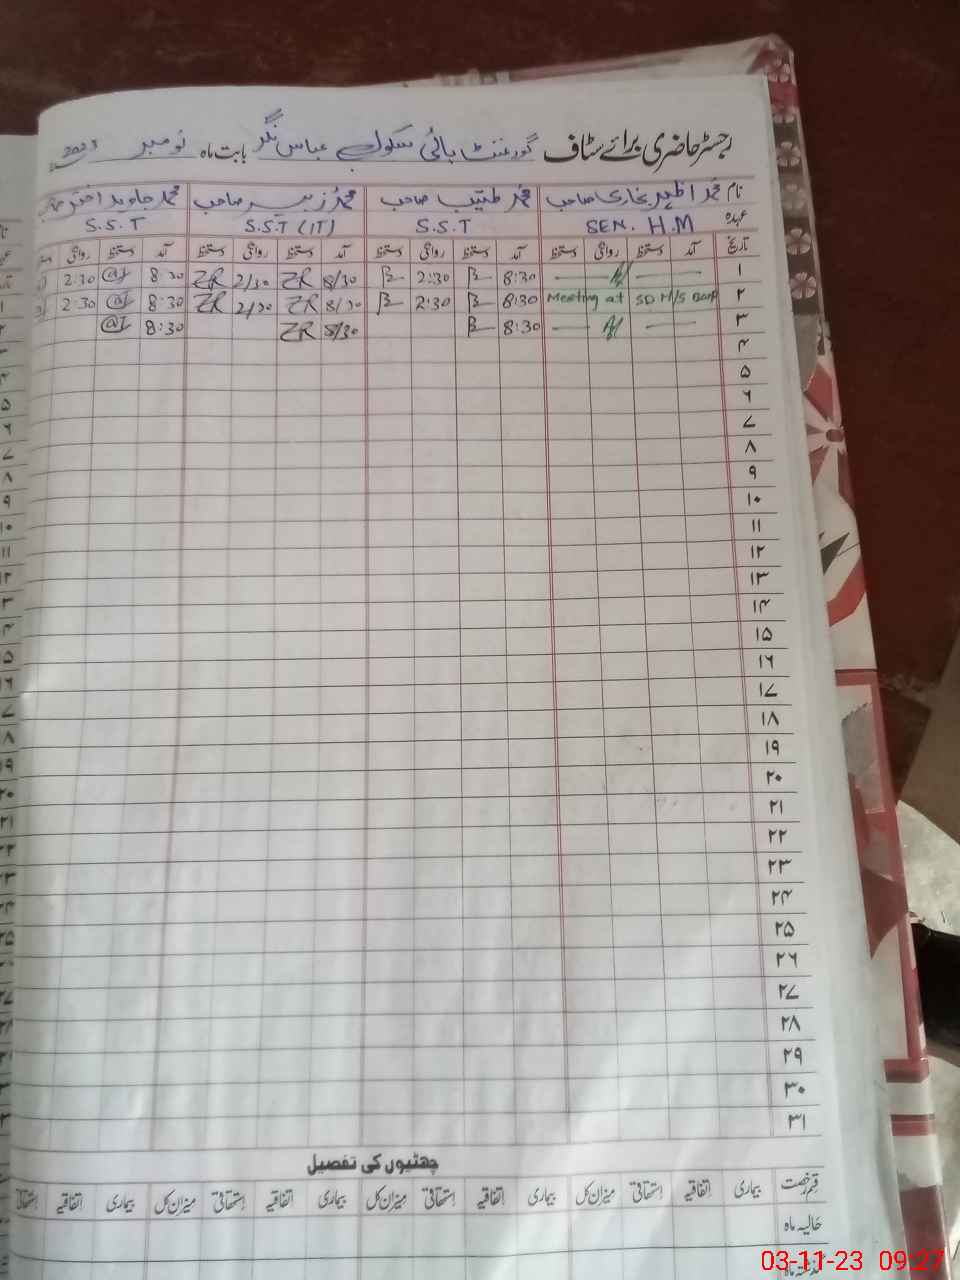 رجسٹر حاضری برائے سٹاف گورنمنٹ ہائی سکول عباس نگر بابت ماہ نومبر 2023
نام محمد اظہر بخاری صاحب محمد طیب صاحب محمد زبیر صاحب محمد جاوید اختر
عہدہ SEN. H.M S.S.T S.S.T (IT) S.S.T
تاریخ آمد دستخط روانگی دستخط آمد دستخط روانگی دستخط آمد دستخط روانگی دستخط آمد دستخط روانگی
۱ 8:30 2:30 8/30 ZR 2/30 ZR 8:30 2:30
۲ Meeting at SD H/S 8:30 2:30 8/30 ZR 2/30 ZR 8:30 2:30
۳ 8:30 8/30 ZR 8:30
۴
۵
۶
۷
۸
۹
۱۰
۱۱
۱۲
۱۳
۱۴
۱۵
۱۶
۱۷
۱۸
۱۹
۲۰
۲۱
۲۲
۲۳
۲۴
۲۵
۲۶
۲۷
۲۸
۲۹
۳۰
۳۱
چھٹیوں کی تفصیل
قسم رخصت بیماری اتفاقیہ استحقاقی میزان کل بیماری اتفاقیہ استحقاقی میزان کل بیماری اتفاقیہ استحقاقی میزان کل بیماری اتفاقیہ استحقاقی
حالیہ ماہ
گذشتہ ماہ
03-11-23 09:27